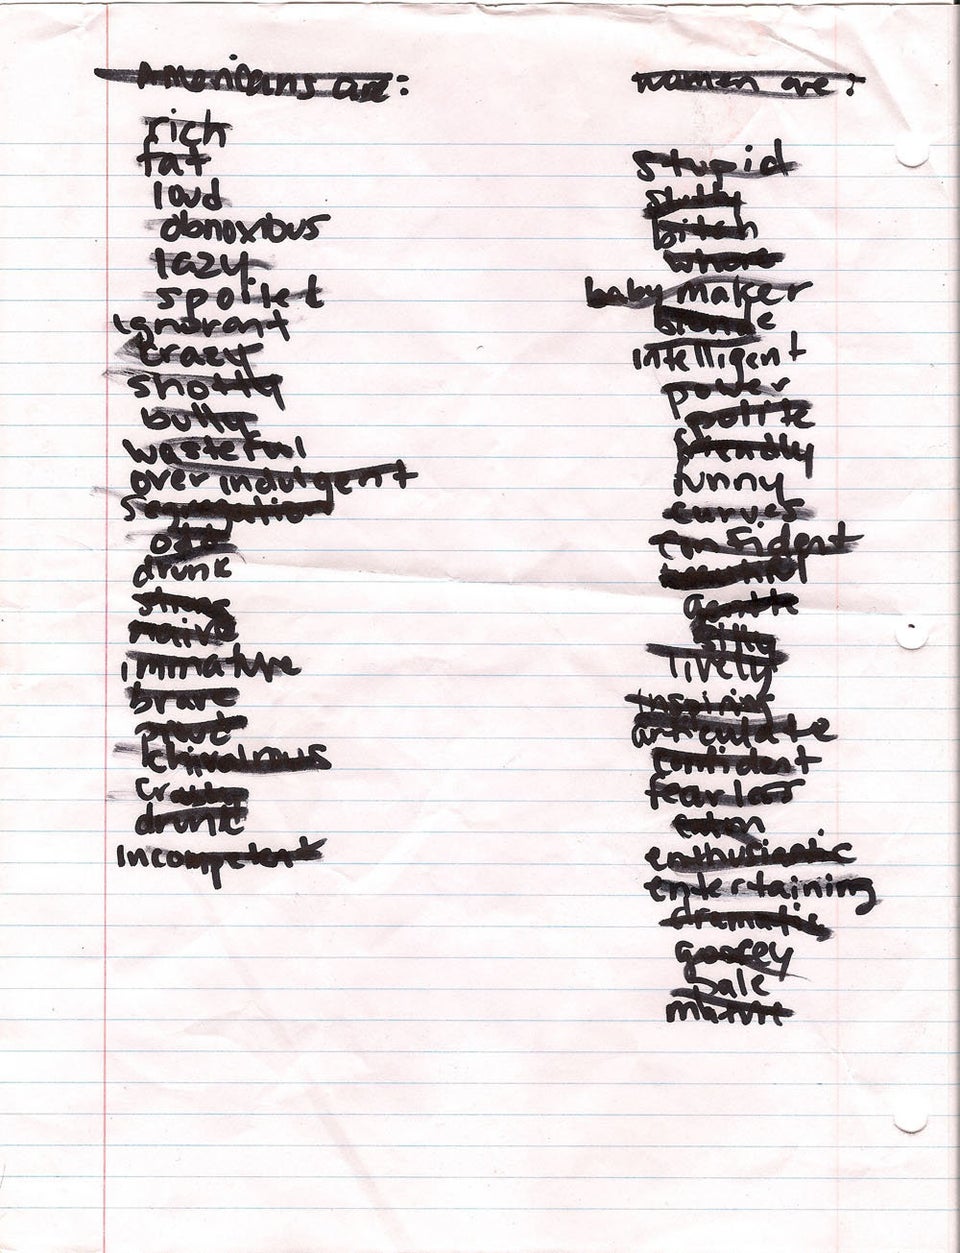 Americans are:
rich
fat
loud
obnoxious
lazy
spoilet
ignorant
crazy
shotty
butty
wasteful
over indulgent
segregation
odd
drunk
naive
immature
brave
proud
chivalrous
drunk
incompetent
women are:
stupid
slutty
bitch
whore
baby maker
blonde
intelligent
power
polite
friendly
funny
curves
confident
beautiful
gentle
silly
lively
inspiring
articulate
confident
fearless
enthusiastic
entertaining
dramatic
goofey
mature